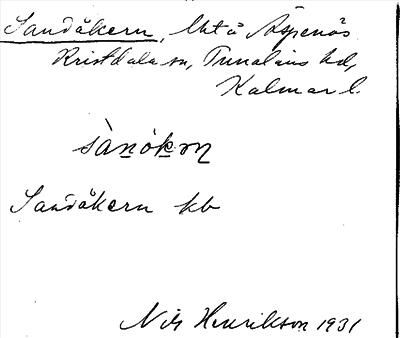 Sandåkern, Ukt å Äspenäs
Kristdala sn, Tunaläns hd,
Kalmar l.
sànókɐṇ
Sandåkern kb
Nils Henrikson 1931